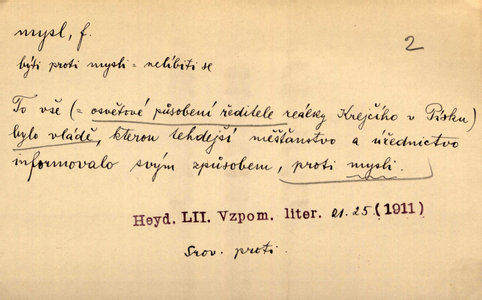 mysl, f.
2
býti proti mysli = nelíbiti se
To vše (= osvětové působení ředitele reálky Krejčího v Písku)
bylo vládě, kterou tehdejší měšťanstvo a úřednictvo
informovalo svým způsobem, proti mysli.
Heyd. LII. Vzpom. liter. 21.25 (1911)
Srov. proti.